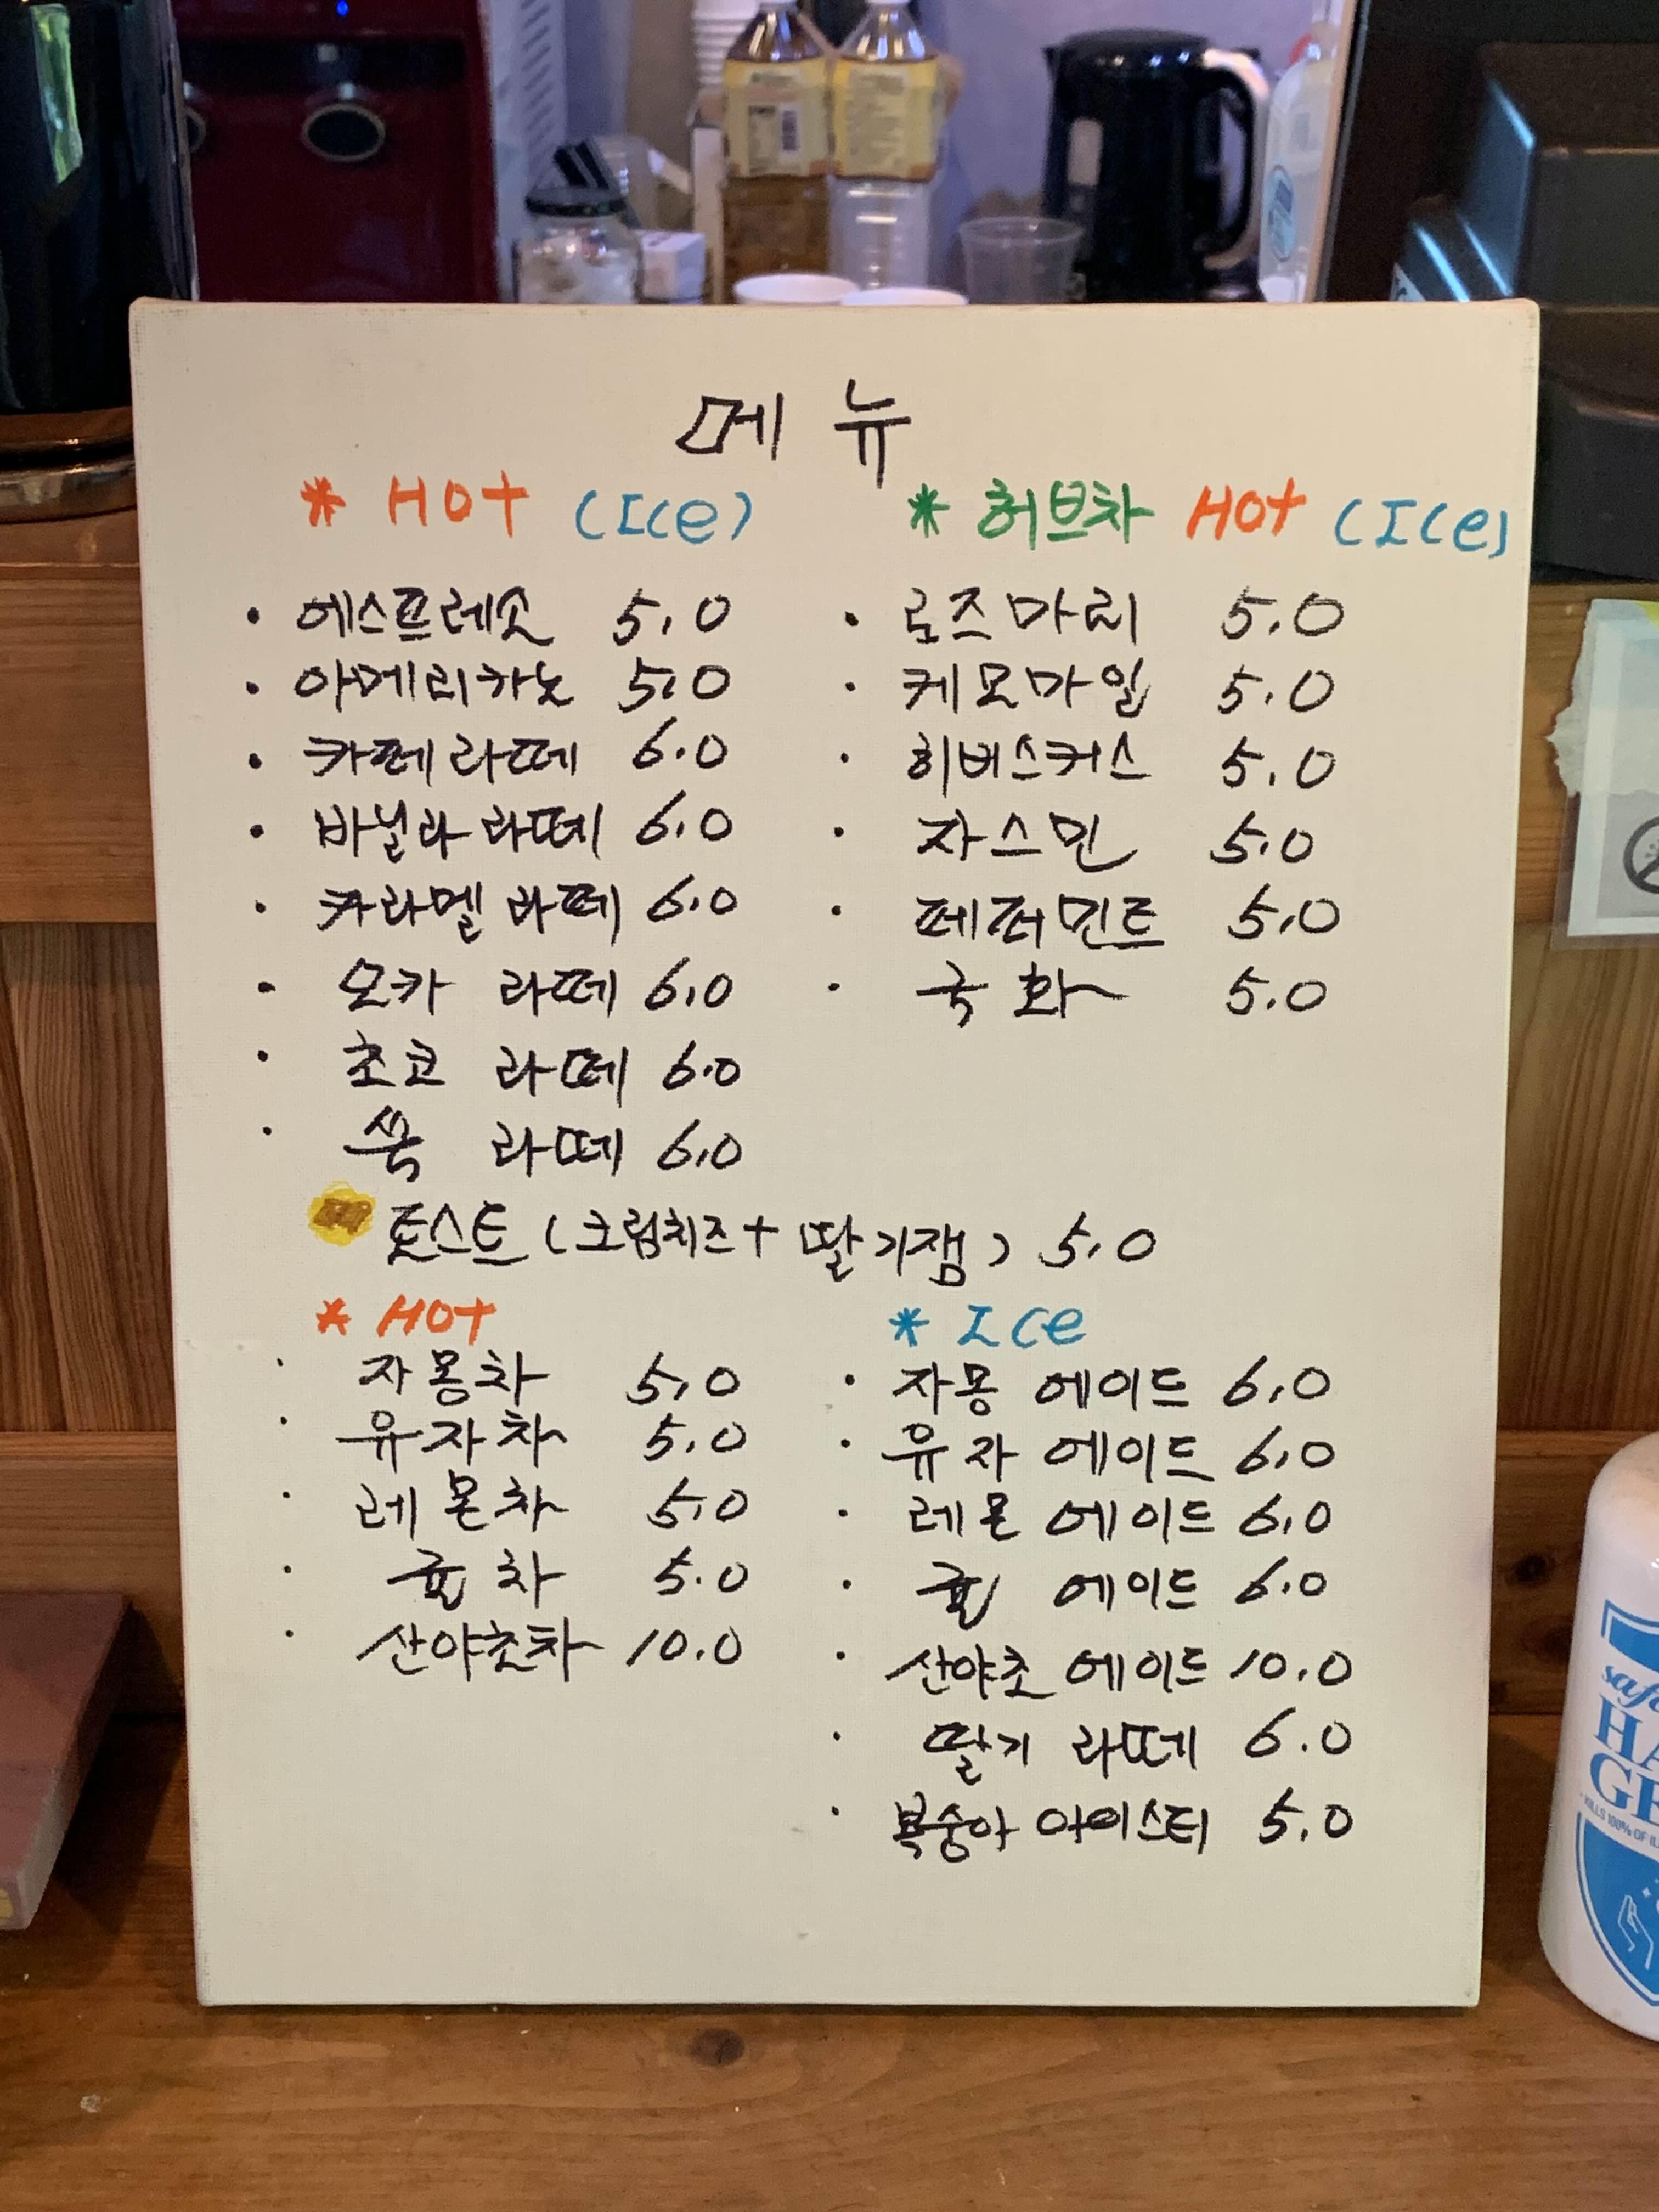 메뉴
* HOT (ICe)
· 에스프레소 5.0
· 아메리카노 5.0
· 카페라떼 6.0
· 바닐라 라떼 6.0
· 카라멜 라떼 6.0
· 모카 라떼 6.0
· 초코 라떼 6.0
· 쑥 라떼 6.0
* 허브차 HOt (ICe)
· 로즈마리 5.0
· 케모마일 5.0
· 히비스커스 5.0
· 자스민 5.0
· 페퍼민트 5.0
· 국화 5.0
토스트 (크림치즈 + 딸기잼) 5.0
* HOT
· 자몽차 5.0
· 유자차 5.0
· 레몬차 5.0
· 귤차 5.0
· 산야초차 10.0
* ICe
· 자몽 에이드 6.0
· 유자 에이드 6.0
· 레몬 에이드 6.0
· 귤 에이드 6.0
· 산야초 에이드 10.0
· 딸기 라떼 6.0
· 복숭아 아이스티 5.0